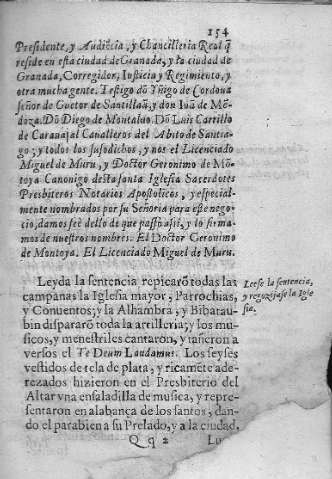 154
Presidente, y Audiẽcia, y Chancilleria Real q̃
reside en esta ciudad de Granada, y la ciudad de
Granada, Corregidor, Iusticia y Regimiento, y
otra mucha gente. Testigo dõ Yñigo de Cordoua
señor de Guetor de Santillaã, y don Iuã de Mẽ-
doza. Dõ Diego de Montaluo. Dõ Luis Carrillo
de Carauajal Caualleros del Abito de Santia-
go; y todos los susodichos, y nos el Licenciado
Miguel de Muru, y Doctor Geronimo de Mõ-
toya Canonigo desta santa Iglesia Sacerdotes
Presbiteros Notarios Apostolicos, y especial-
mente nombrados por su Señoria para este nego-
cio, damos feè dello de que passò assi, y lo firma-
mos de nuestros nombres. El Doctor Geronimo
de Montoya. El Licenciado Miguel de Muru.
Leyda la sentencia repicarõ todas las
campanas la Iglesia mayor, Parrochias,
y Conuentos; y la Alhambra, y Bibatau-
bin dispararõ toda la artilleria; y los mu-
sicos, y menestriles cantaron, y tañeron a
versos el Te Deum Laudamus. Los seyses
vestidos de tela de plata, y ricamẽte ade-
rezados hizieron en el Presbiterio del
Altar vna ensaladilla de musica, y repre-
sentaron en alabança de los santos, dan-
do el parabien a su Prelado, y a la ciudad.
Leese la sentencia,
y regozijase la Igle
sia.
Qq 2
Lu